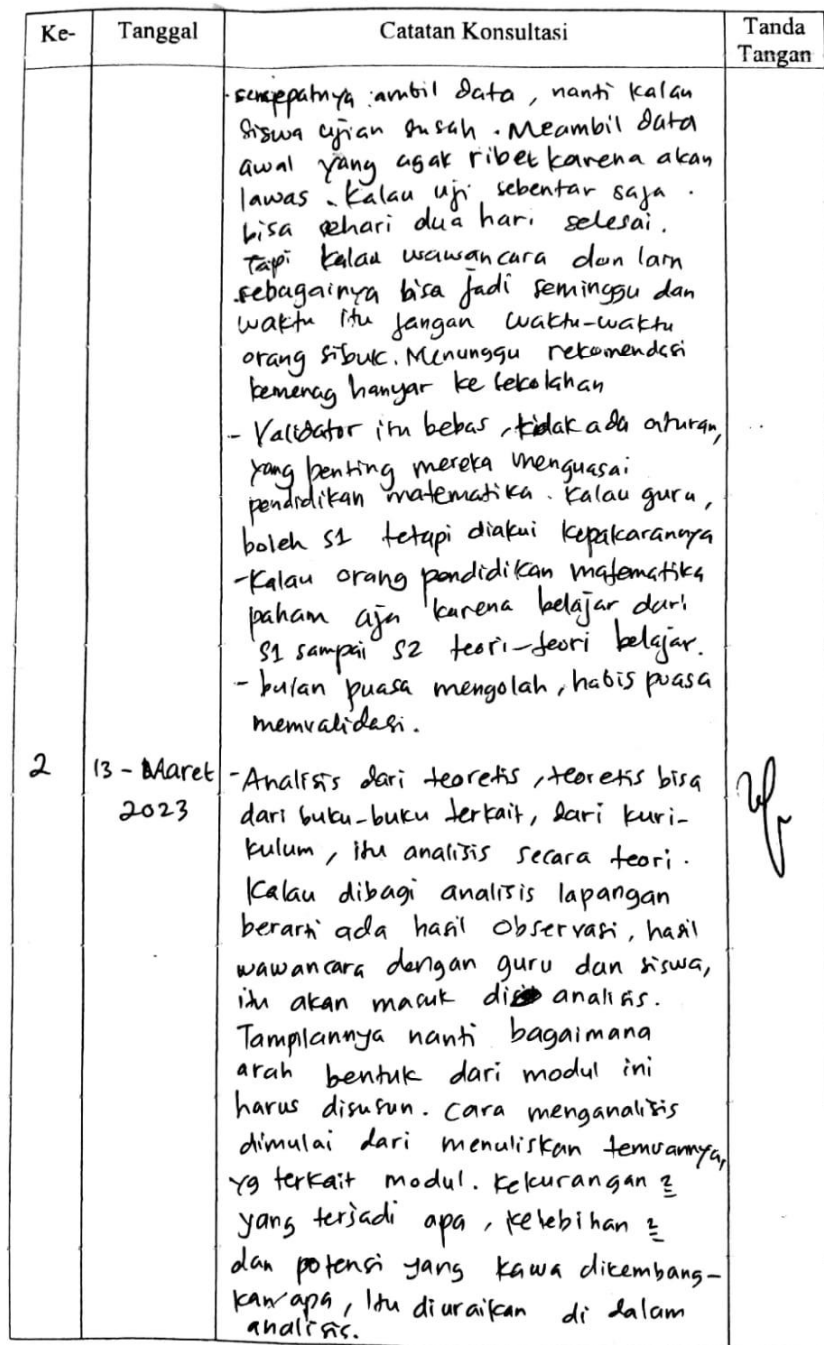 Ke- Tanggal Catatan Konsultasi Tanda Tangan
- secepatnya ambil data, nanti kalau
siswa ujian susah. Meambil data
awal yang agak ribet karena akan
lawas. Kalau uji sebentar saja.
bisa sehari dua hari selesai.
Tapi kalau wawancara dan lain
sebagainya bisa jadi seminggu dan
waktu itu jangan waktu-waktu
orang sibuk. Menunggu rekomendasi
kemenag hanyar ke sekolahan
- Validator itu bebas, tidak ada aturan,
yang penting mereka menguasai
pendidikan matematika. Kalau guru,
boleh S1 tetapi diakui kepakarannya
- Kalau orang pendidikan matematika
paham aja karena belajar dari
S1 sampai S2 teori-teori belajar.
- bulan puasa mengolah, habis puasa
memvalidasi.
2 13 - Maret - Analisis dari teoretis, teoretis bisa
2023 dari buku-buku terkait, dari kuri-
kulum, itu analisis secara teori.
Kalau dibagi analisis lapangan
berarti ada hasil observasi, hasil
wawancara dengan guru dan siswa,
itu akan masuk di analisis.
Tamplannya nanti bagaimana
arah bentuk dari modul ini
harus disusun. Cara menganalisis
dimulai dari menuliskan temuannya,
yg terkait modul. Kekurangan 2
yang terjadi apa, kelebihan 2
dan potensi yang kawa dikembang-
kan apa, Itu diuraikan di dalam
analisis.